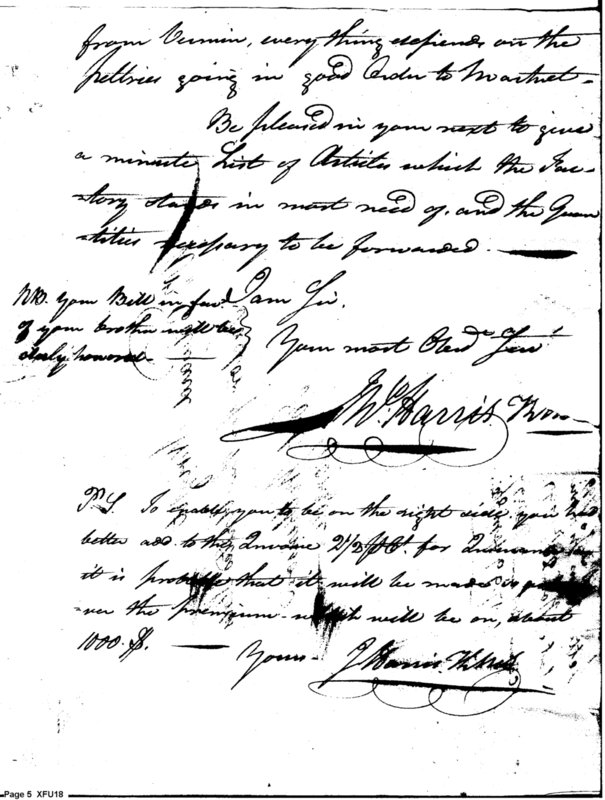 from Vermin, every thing depends on the
peltries going in good Order to Market-
Be pleased in your next to give
a minute List of Articles which the Fac-
-tory stands in most need of, and the Quan
-tities necessary to be forwarded.
NB. your Bill in favr
of your brother will be
duly honored.
I am Sir,
Your most Obedt Servt
Harris
P.S. To enable you to be on the right side, you had
better add to the Invoice 2 1/2 for
it is probable that it will be made
-ver the premium which will be on, about
1000 $.
Yours- J Harris
Page 5 XFU18